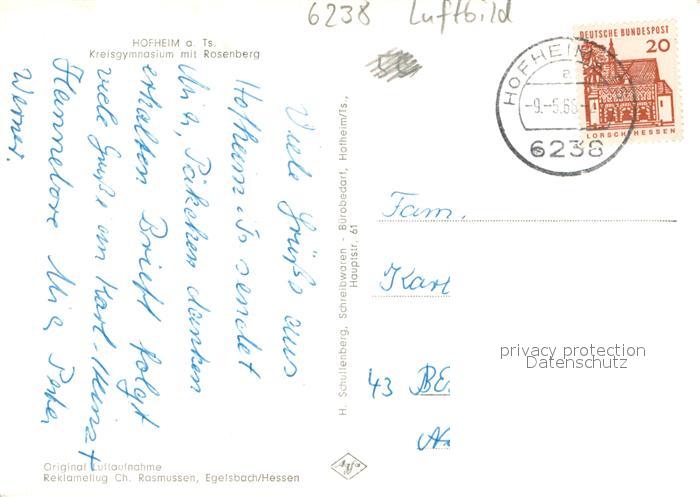 6238 Luftbild
HOFHEIM a. Ts.
Kreisgymnasium mit Rosenberg
Viele Grüße aus
Hofheim/Ts sendet
Mia, Päkchen danken
erhalten Brieft folgt
viele Grüße an Karl-Heinz +
Hannelore Mia, Peter
Werner.
Original Luftaufnahme
Reklameflug Ch. Rasmussen, Egelsbach/Hessen
H. Schullenberg, Schreibwaren - Bürobedarf, Hofheim/Ts.,
Hauptstr. 61
Agfa
DEUTSCHE BUNDESPOST
20
LORSCH · HESSEN
HOFHEIM
-9.-5.66-
6238
Fam.
Karl
43 BE
privacy protection
Datenschutz